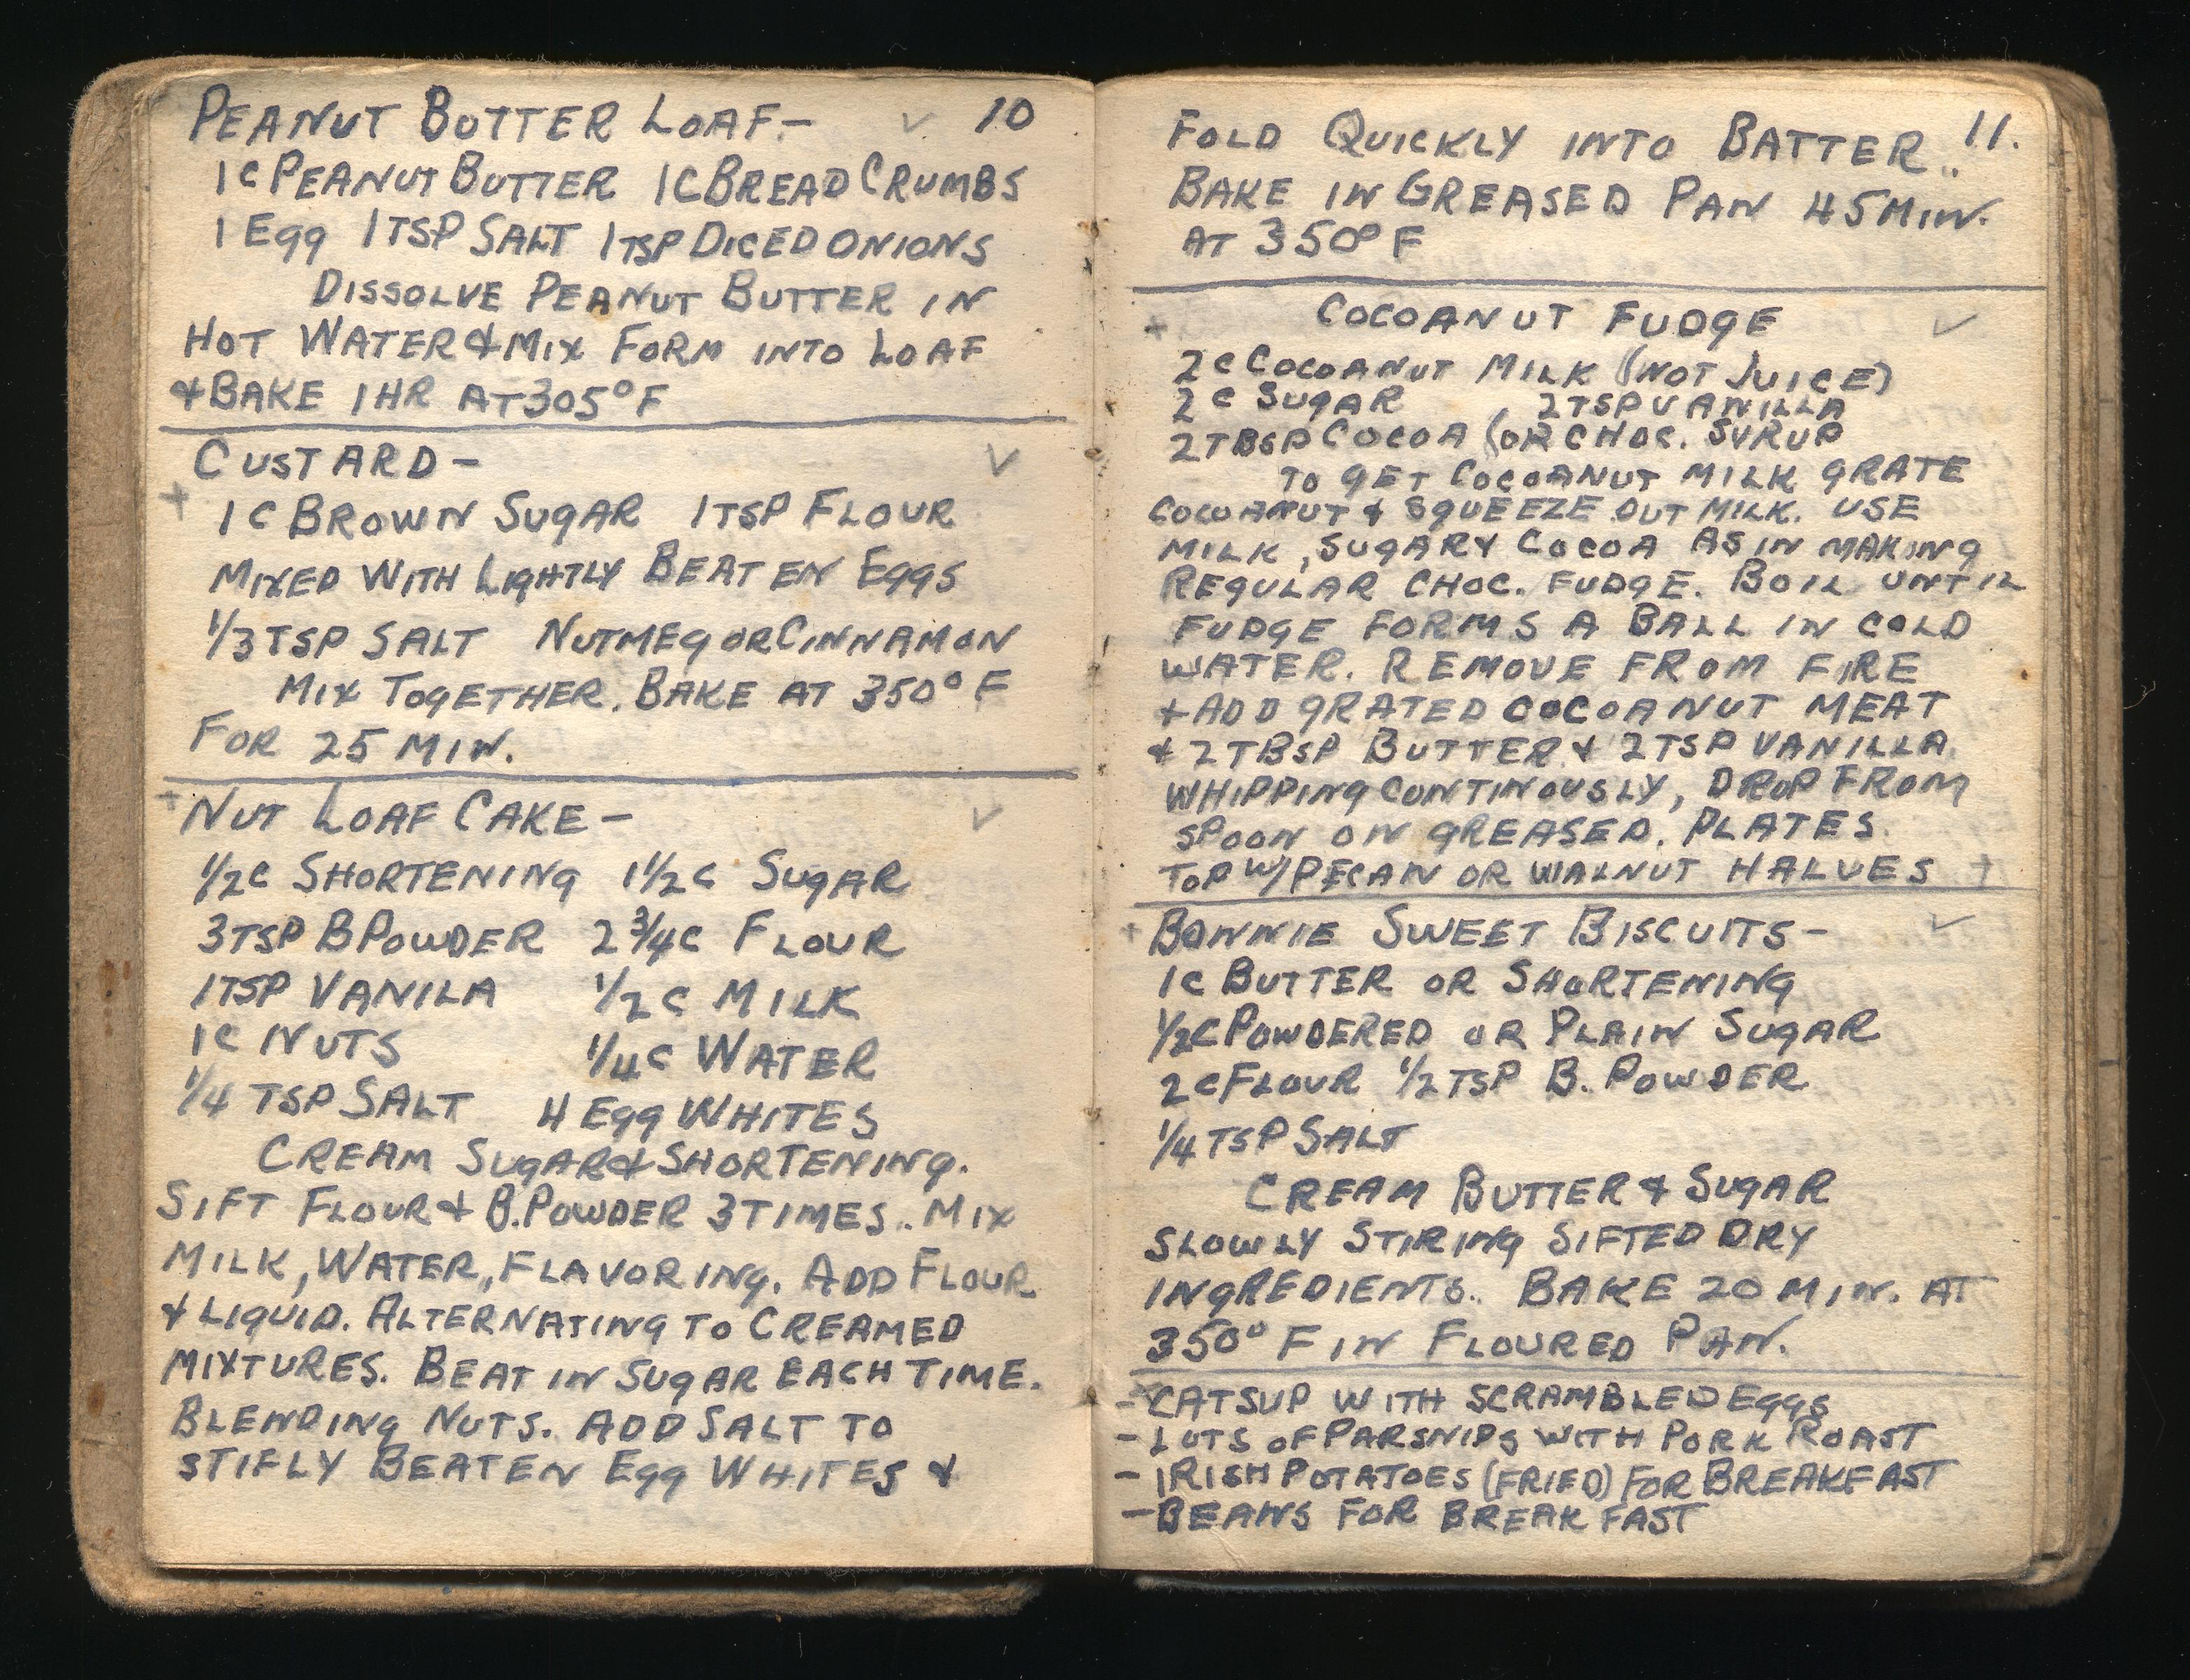 PEANUT BUTTER LOAF.- ✓ 10
1C PEANUT BUTTER 1C BREAD CRUMBS
1 EGG 1TSP SALT 1TSP DICED ONIONS
DISSOLVE PEANUT BUTTER IN
HOT WATER & MIX FORM INTO LOAF
& BAKE 1HR AT 305° F
CUSTARD - ✓
+ 1C BROWN SUGAR 1TSP FLOUR
MIXED WITH LIGHTLY BEATEN EGGS
1/3 TSP SALT NUTMEG OR CINNAMON
MIX TOGETHER. BAKE AT 350° F
FOR 25 MIN.
+ NUT LOAF CAKE - ✓
1/2C SHORTENING 1 1/2 C SUGAR
3TSP BPOWDER 2 3/4C FLOUR
1TSP VANILA 1/2 C MILK
1C NUTS 1/4C WATER
1/4 TSP SALT 4 EGG WHITES
CREAM SUGAR & SHORTENING.
SIFT FLOUR & B.POWDER 3 TIMES.. MIX
MILK, WATER, FLAVORING. ADD FLOUR
& LIQUID. ALTERNATING TO CREAMED
MIXTURES. BEAT IN SUGAR EACH TIME.
BLENDING NUTS. ADD SALT TO
STIFLY BEATEN EGG WHITES &
FOLD QUICKLY INTO BATTER.. 11.
BAKE IN GREASED PAN 45 MIN.
AT 350° F
+ COCOANUT FUDGE ✓
2C COCOANUT MILK (NOT JUICE)
2C SUGAR , 2TSP VANILLA
2TBSP COCOA (OR CHOC. SYRUP
TO GET COCOANUT MILK GRATE
COCOANUT & SQUEEZE OUT MILK. USE
MILK, SUGAR & COCOA AS IN MAKING
REGULAR CHOC. FUDGE. BOIL UNTIL
FUDGE FORMS A BALL IN COLD
WATER. REMOVE FROM FIRE
& ADD GRATED COCOANUT MEAT
& 2TBSP BUTTER & 2TSP VANILLA
WHIPPING CONTINOUSLY, DROP FROM
SPOON ON GREASED. PLATES
TOP W/PECAN OR WALNUT HALVES +
+ BONNIE SWEET BISCUITS - ✓
1C BUTTER OR SHORTENING
1/2C POWDERED OR PLAIN SUGAR
2C FLOUR 1/2 TSP B. POWDER
1/4 TSP SALT
CREAM BUTTER & SUGAR
SLOWLY STIRING SIFTED DRY
INGREDIENTS.. BAKE 20 MIN. AT
350° F IN FLOURED PAN.
- CATSUP WITH SCRAMBLED EGGS
- LOTS OF PARSNIPS WITH PORK ROAST
- IRISH POTATOES (FRIED) FOR BREAKFAST
- BEANS FOR BREAKFAST